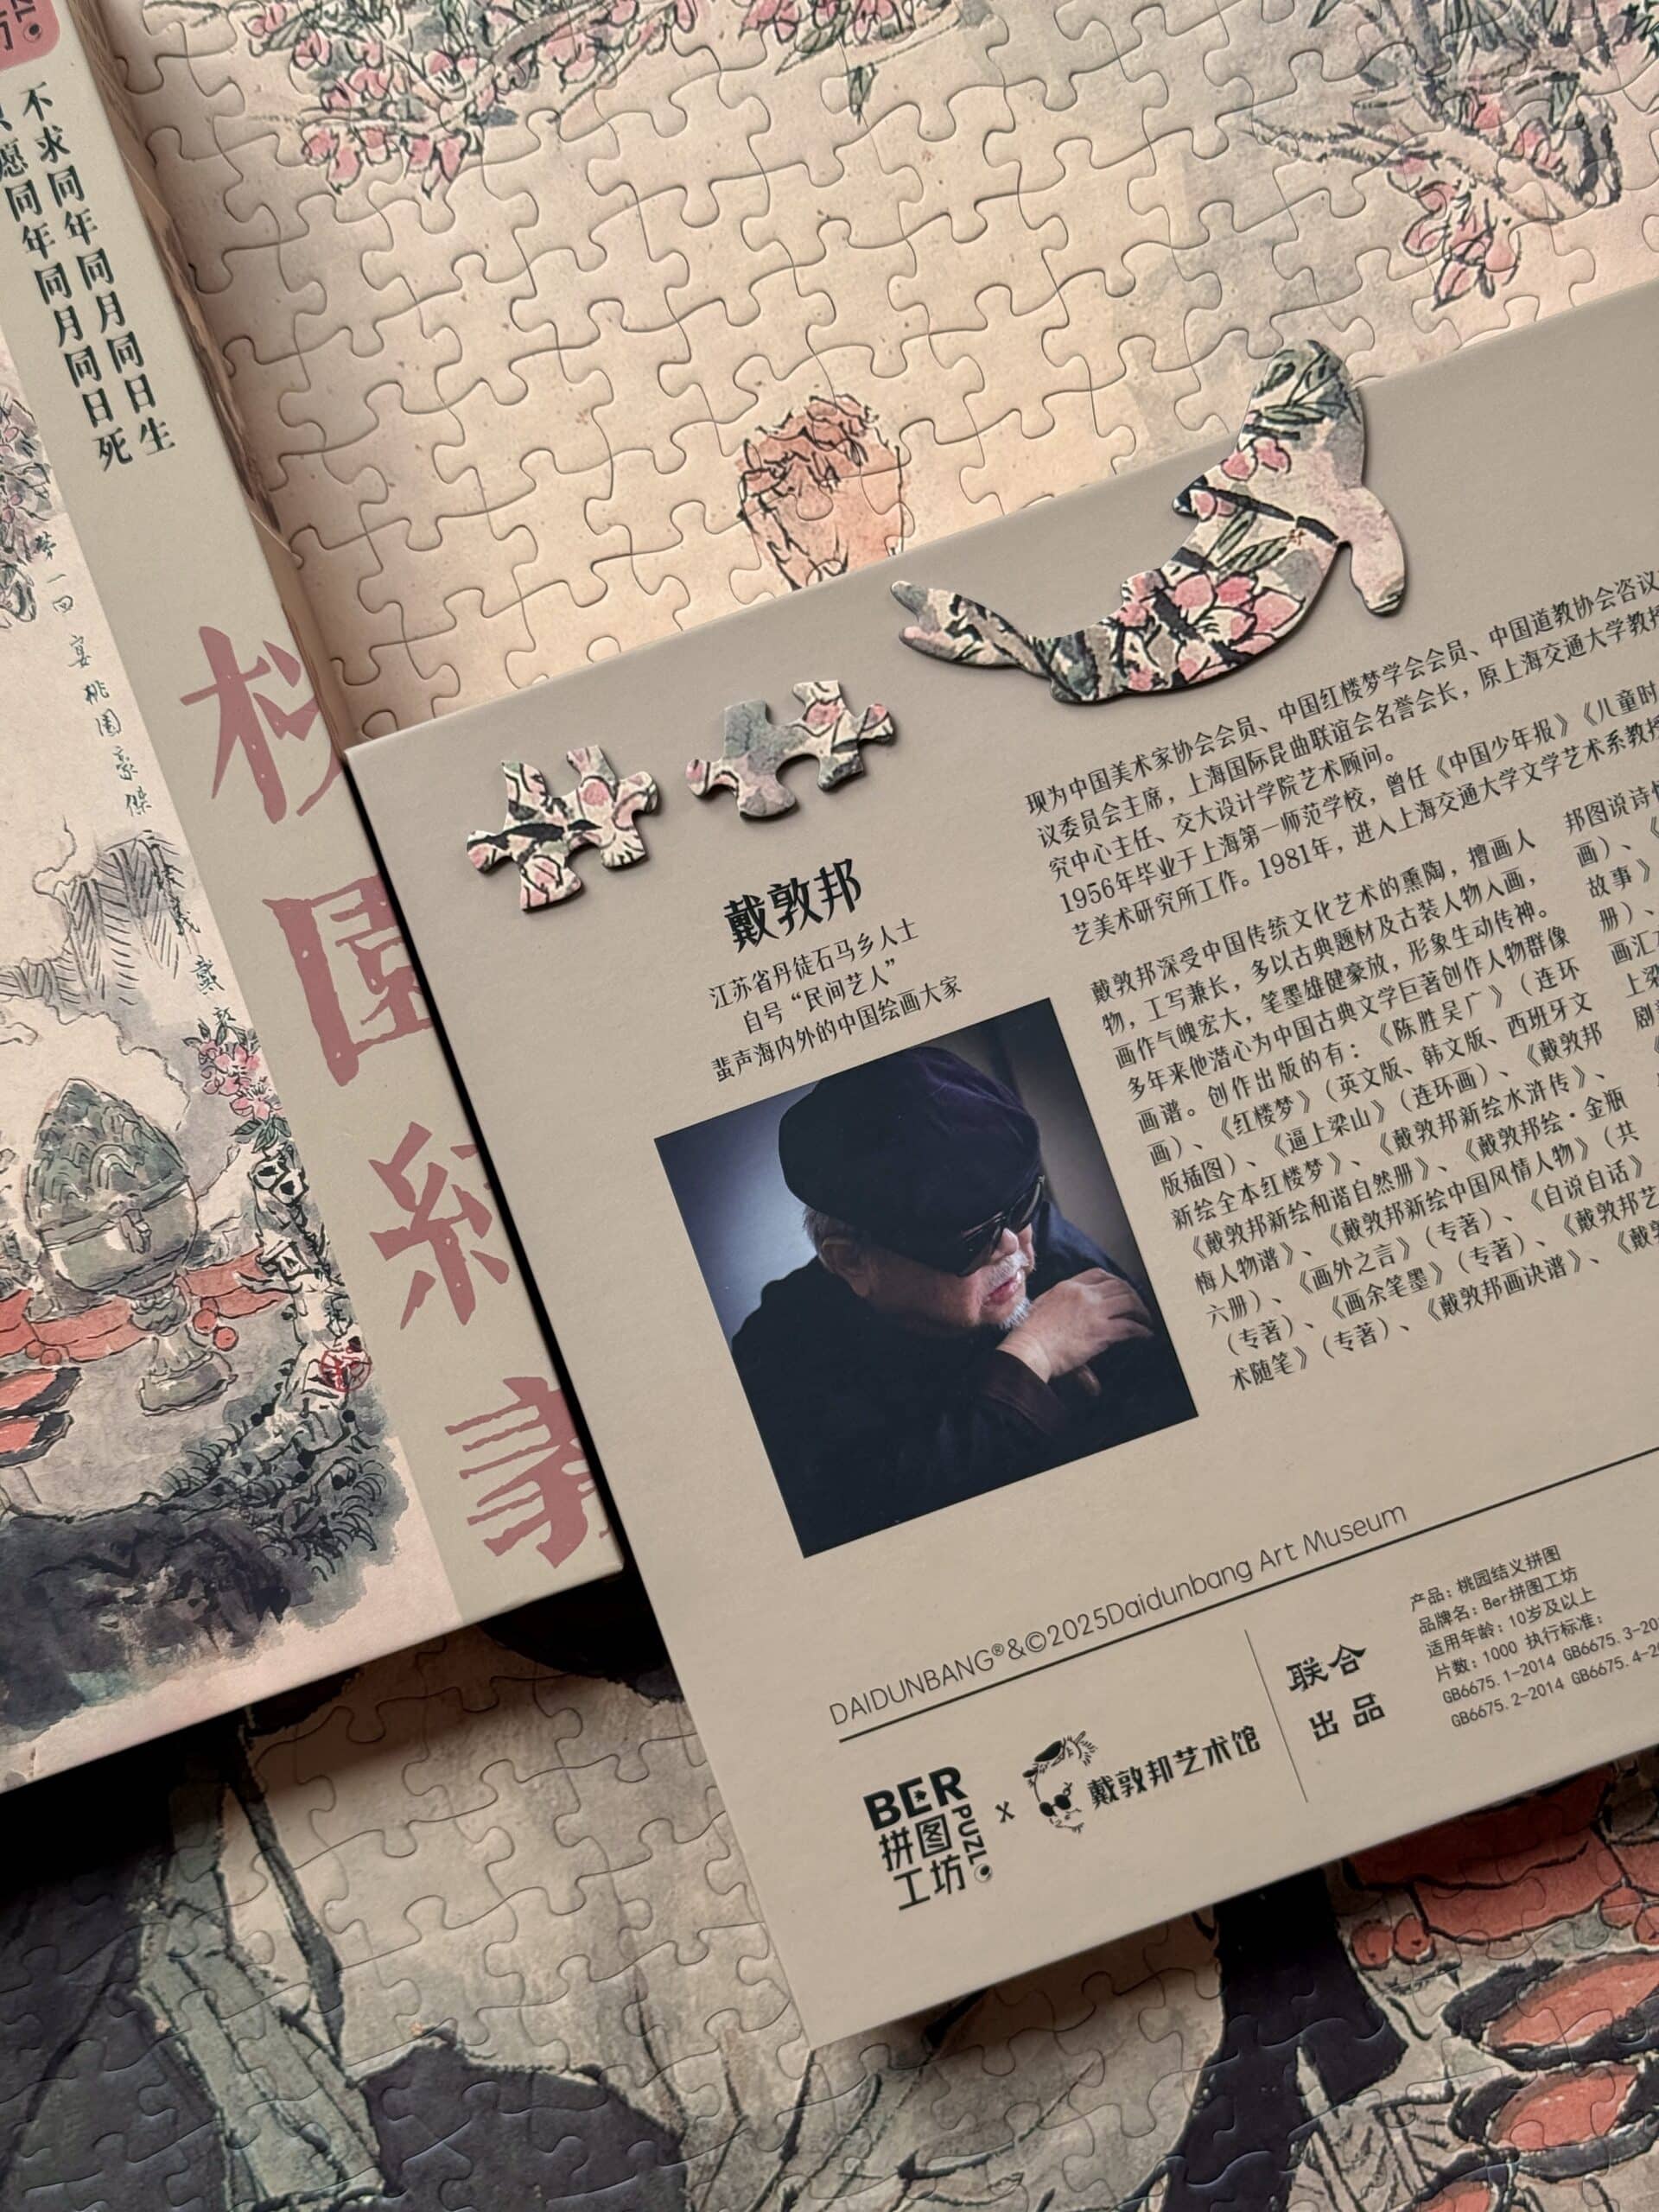 不求同年同月同日生
愿同年同月同日死
第一回 宴桃園豪傑
桃
園
結
義
戴敦邦
江苏省丹徒石马乡人士
自号“民间艺人”
蜚声海内外的中国绘画大家
现为中国美术家协会会员、中国红楼梦学会会员、中国道教协会咨议
议委员会主席，上海国际昆曲联谊会名誉会长，原上海交通大学教授
究中心主任、交大设计学院艺术顾问。
1956年毕业于上海第一师范学校，曾任《中国少年报》《儿童时
艺美术研究所工作。1981年，进入上海交通大学文学艺术系教授
戴敦邦深受中国传统文化艺术的熏陶，擅画人
物，工写兼长，多以古典题材及古装人物入画，
画作气魄宏大，笔墨雄健豪放，形象生动传神。
多年来他潜心为中国古典文学巨著创作人物群像
画谱。创作出版的有：《陈胜吴广》（连环
画）、《红楼梦》（英文版、韩文版、西班牙文
版插图）、《逼上梁山》（连环画）、《戴敦邦
新绘全本红楼梦》、《戴敦邦新绘水浒传》、
《戴敦邦新绘和谐自然册》、《戴敦邦绘·金瓶
梅人物谱》、《戴敦邦新绘中国风情人物》（共
六册）、《画外之言》（专著）、《自说自话》
（专著）、《画余笔墨》（专著）、《戴敦邦艺
术随笔》（专著）、《戴敦邦画诀谱》、《戴敦
邦图说诗情
画）、《
故事》
册）、
画汇
上梁
剧
DAIDUNBANG®&©2025Daidunbang Art Museum
BER
拼图
工坊
PUZL
x
戴敦邦艺术馆
联合
出品
产品：桃园结义拼图
品牌名：Ber拼图工坊
适用年龄：10岁及以上
片数：1000 执行标准：
GB6675.1-2014 GB6675.3-20
GB6675.2-2014 GB6675.4-20